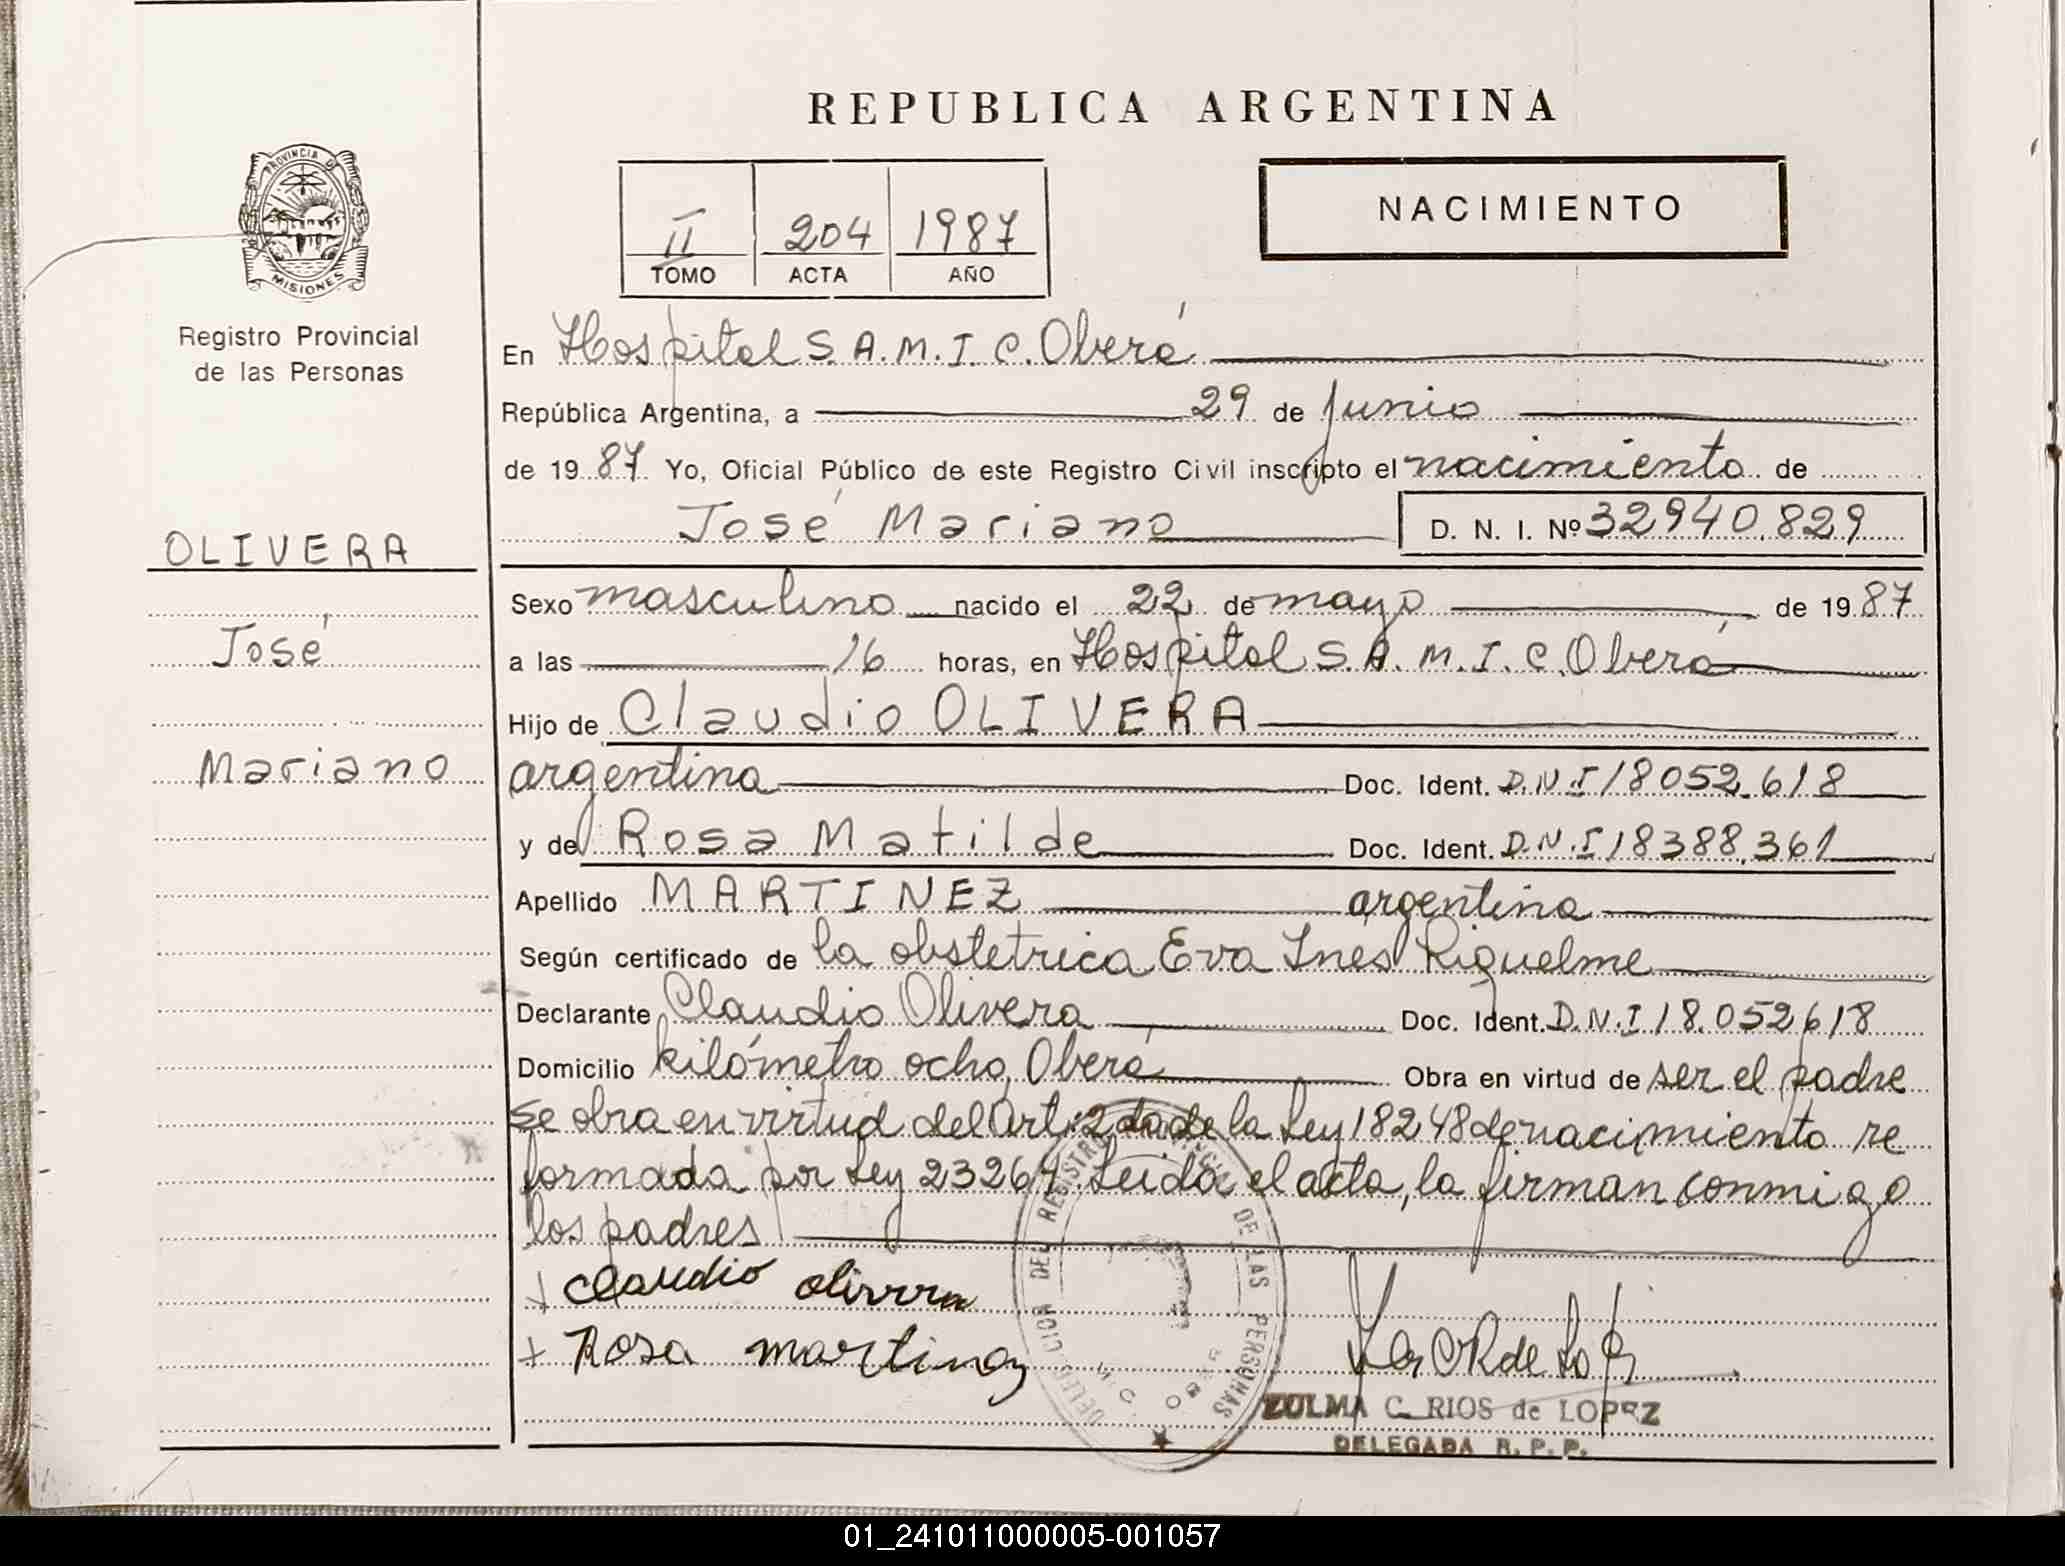 REPUBLICA ARGENTINA
PROVINCIA DE
MISIONES
II 204 1987
TOMO ACTA AÑO
NACIMIENTO
Registro Provincial
de las Personas
OLIVERA
José
Mariano
En Hospital S.A.M.I.C. Oberá
República Argentina, a 29 de junio
de 1987 Yo, Oficial Público de este Registro Civil inscripto el nacimiento de
José Mariano D. N. I. Nº 32940.829
Sexo masculino nacido el 22 de mayo de 1987
a las 16 horas, en Hospital S.A.M.I.C. Oberá
Hijo de Claudio OLIVERA
argentina Doc. Ident. D.N.I 18052.618
y de Rosa Matilde Doc. Ident. D.N.I 18388.361
Apellido MARTINEZ argentina
Según certificado de la obstetrica Eva Ines Riquelme
Declarante Claudio Olivera Doc. Ident. D.N.I 18.052618
Domicilio kilómetro ocho, Oberá Obra en virtud de ser el padre
se obra en virtud del Art: 2 da de la Ley 18248 de nacimiento re
formada por Ley 23264. Leida el acta, la firman conmigo
los padres
+ Claudio olivera
+ Rosa martinez
DELEGACION DEL REGISTRO PROVINCIAL DE LAS PERSONAS
ZULMA C. RIOS de LOPEZ
DELEGADA R. P. P.
01_241011000005-001057